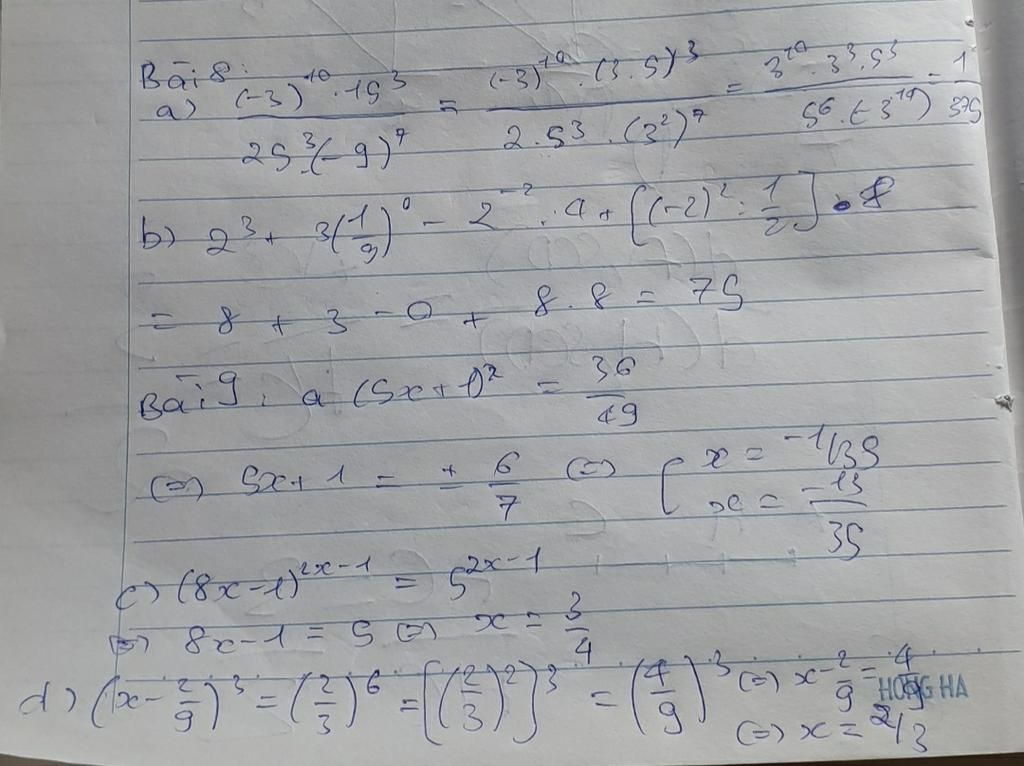 Bài 8:
a) \frac{(-3)^{10} \cdot 15^3}{25^3 \cdot (-9)^7} = \frac{(-3)^{10} \cdot (3 \cdot 5)^3}{2 \cdot 5^3 \cdot (3^2)^7} = \frac{3^{10} \cdot 3^3 \cdot 5^3}{5^6 \cdot (-3^{14})} = \frac{-1}{375}
b) 2^3 + 3(\frac{1}{9})^0 - 2^{-2} \cdot 4 + [(-2)^2 : \frac{1}{2}] \cdot 8
= 8 + 3 - 0 + 8 . 8 = 75
Bài 9: a (5x+1)^2 = \frac{36}{49}
(=) 5x + 1 = ± \frac{6}{7} (=) [ x = -1/35
x = \frac{-13}{35}
c) (8x-1)^{2x-1} = 5^{2x-1}
(=) 8x-1 = 5 (=) x = \frac{3}{4}
d) (x - \frac{2}{9})^3 = (\frac{2}{3})^6 = [(\frac{2}{3})^2]^3 = (\frac{4}{9})^3 (=) x - \frac{2}{9} = \frac{4}{9}
HỒNG HÀ
(=) x = 2/3